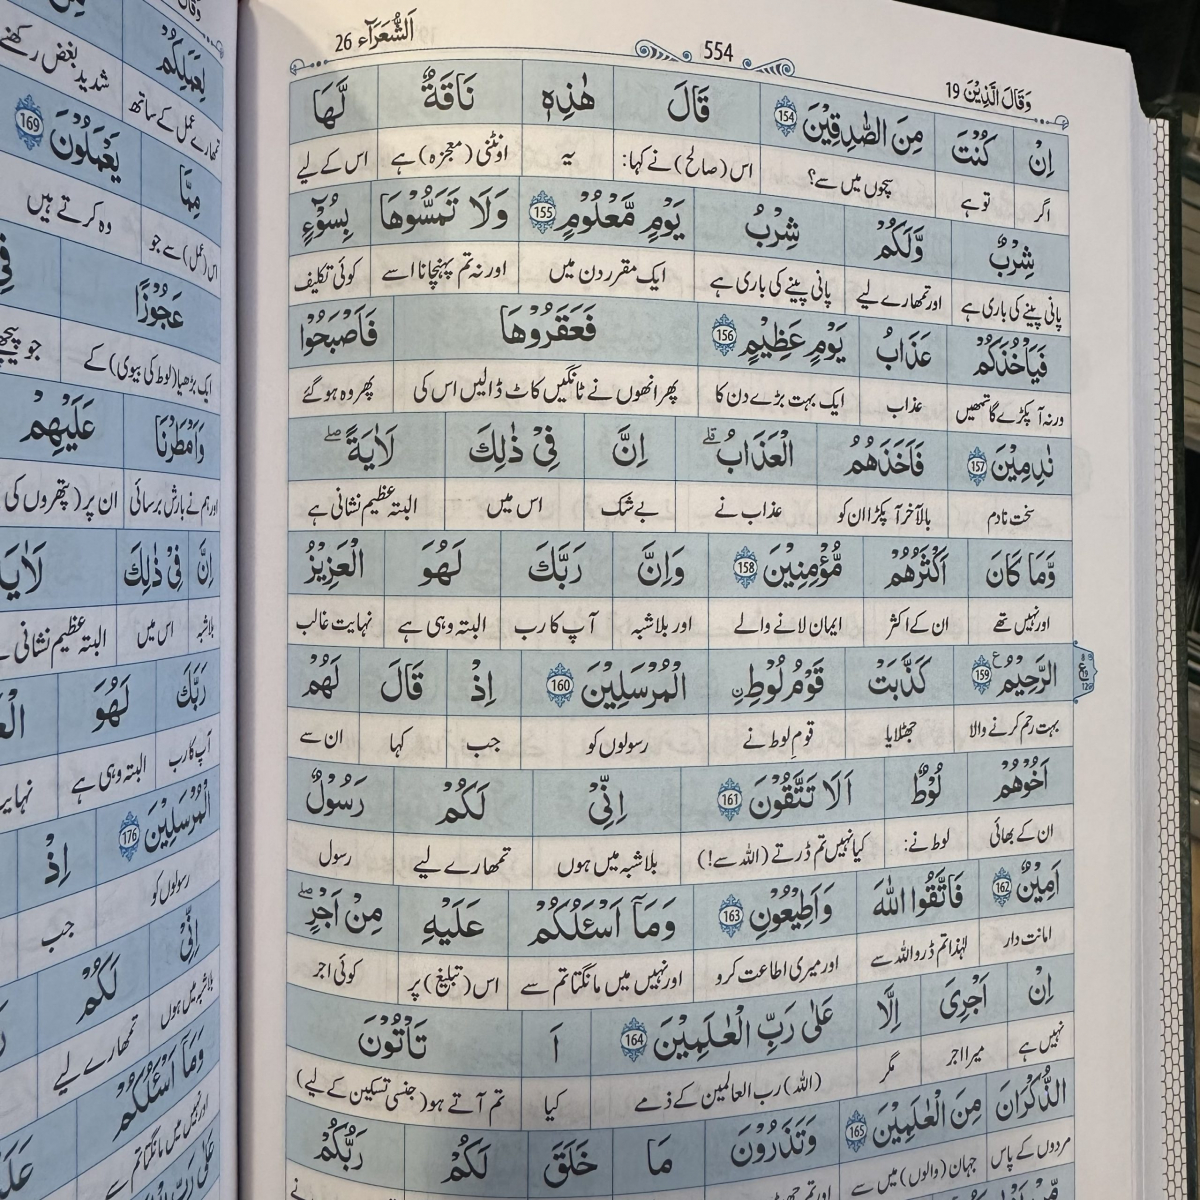 وَقَالَ الَّذِيْنَ 19
554
اَلشُّعَرَآء 26
اِنْ كُنْتَ مِنَ الصّٰدِقِيْنَ 154 قَالَ هٰذِهٖ نَاقَةٌ لَّهَا
اگر تو ہے سچوں میں سے؟ اس (صالح) نے کہا: یہ اونٹنی (معجزہ) ہے اس کے لیے
شِرْبٌ وَّلَكُمْ شِرْبُ يَوْمٍ مَّعْلُوْمٍ 155 وَلَا تَمَسُّوْهَا بِسُوْٓءٍ
پانی پینے کی باری ہے اور تمھارے لیے پانی پینے کی باری ہے ایک مقرر دن میں اور نہ تم پہنچانا اسے کوئی تکلیف
فَيَاْخُذَكُمْ عَذَابُ يَوْمٍ عَظِيْمٍ 156 فَعَقَرُوْهَا فَاَصْبَحُوْا
ورنہ آ پکڑے گا تمھیں عذاب ایک بہت بڑے دن کا پھر انھوں نے ٹانگیں کاٹ ڈالیں اس کی پھر وہ ہو گئے
نٰدِمِيْنَ 157 فَاَخَذَهُمُ الْعَذَابُ ۗ اِنَّ فِيْ ذٰلِكَ لَاٰيَةً ۖ
سخت نادم بالآخر آ پکڑا ان کو عذاب نے بے شک اس میں البتہ عظیم نشانی ہے
وَّمَا كَانَ اَكْثَرُهُمْ مُّؤْمِنِيْنَ 158 وَاِنَّ رَبَّكَ لَهُوَ الْعَزِيْزُ
اور نہیں تھے ان کے اکثر ایمان لانے والے اور بلاشبہ آپ کا رب البتہ وہی ہے نہایت غالب
الرَّحِيْمُ 159 كَذَّبَتْ قَوْمُ لُوْطِ ۨ الْمُرْسَلِيْنَ 160 اِذْ قَالَ لَهُمْ
بہت رحم کرنے والا جھٹلایا قوم لوط نے رسولوں کو جب کہا ان سے
اَخُوْهُمْ لُوْطٌ اَلَا تَتَّقُوْنَ 161 اِنِّيْ لَكُمْ رَسُوْلٌ
ان کے بھائی لوط نے: کیا نہیں تم ڈرتے (اللہ سے!) بلاشبہ میں ہوں تمھارے لیے رسول
اَمِيْنٌ 162 فَاتَّقُوا اللّٰهَ وَاَطِيْعُوْنِ 163 وَمَآ اَسْـَٔلُكُمْ عَلَيْهِ مِنْ اَجْرٍ ۖ
امانت دار لہٰذا تم ڈرو اللہ سے اور میری اطاعت کرو اور نہیں میں مانگتا تم سے اس (تبلیغ) پر کوئی اجر
اِنْ اَجْرِيَ اِلَّا عَلٰى رَبِّ الْعٰلَمِيْنَ 164 اَ تَاْتُوْنَ
نہیں ہے میرا اجر مگر (اللہ) رب العالمین کے ذمے کیا تم آتے ہو (جنسی تسکین کے لیے)
الذُّكْرَانَ مِنَ الْعٰلَمِيْنَ 165 وَتَذَرُوْنَ مَا خَلَقَ لَكُمْ رَبُّكُمْ
مردوں کے پاس جہان (والوں) میں سے
لِعَمَلِكُمْ
تمھارے عمل کے ساتھ شدید بغض رکھنے
مِمَّا يَعْمَلُوْنَ 169
اس (عمل) سے جو وہ کرتے ہیں
عَجُوْزًا
ایک بڑھیا (لوط کی بیوی) کے جو
وَاَمْطَرْنَا عَلَيْهِمْ
اور ہم نے بارش برسائی ان پر (پتھروں کی
اِنَّ فِيْ ذٰلِكَ
بلاشبہ اس میں البتہ عظیم نشانی
رَبَّكَ لَهُوَ
آپ کا رب البتہ وہی ہے
الْمُرْسَلِيْنَ 176 اِذْ
رسولوں کو جب
اِنِّيْ لَكُمْ
بلاشبہ میں ہوں تمھارے لیے
وَمَآ اَسْـَٔلُكُمْ
اور نہیں میں مانگتا تم سے